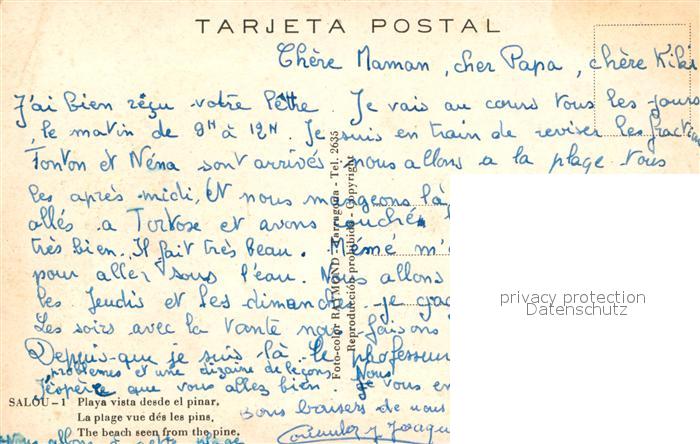 TARJETA POSTAL
Chère Maman, cher Papa, chère Kiki
J'ai bien réçu votre léttre. Je vais au cours tous les jours
le matin de 9H à 12H. Je suis en train de reviser les fraction
Tonton et Néna sont arrivés nous allons a la plage tous
les après midi, Et nous mangeons là
allés a Tortose et avons couché
très bien. Il fait très beau. Mémé m'
pour aller sous l'eau. Nous allons
les Jeudis et les dimanches. je
Les soirs avec la Tante nous faisons
Depuis que je suis là le professeur
problèmes et une dizaine de leçons. Nous
J'éspère que vous allez bien. Je vous en
Bons baisers de nous
y Joaqu
Nous allons à cette plage
SALOU - 1 Playa vista desde el pinar.
La plage vue dés les pins.
The beach seen from the pine.
Foto-color RAYMOND - Tarragona - Tel. 2635
Reproducción prohibida - Copyright
privacy protection
Datenschutz